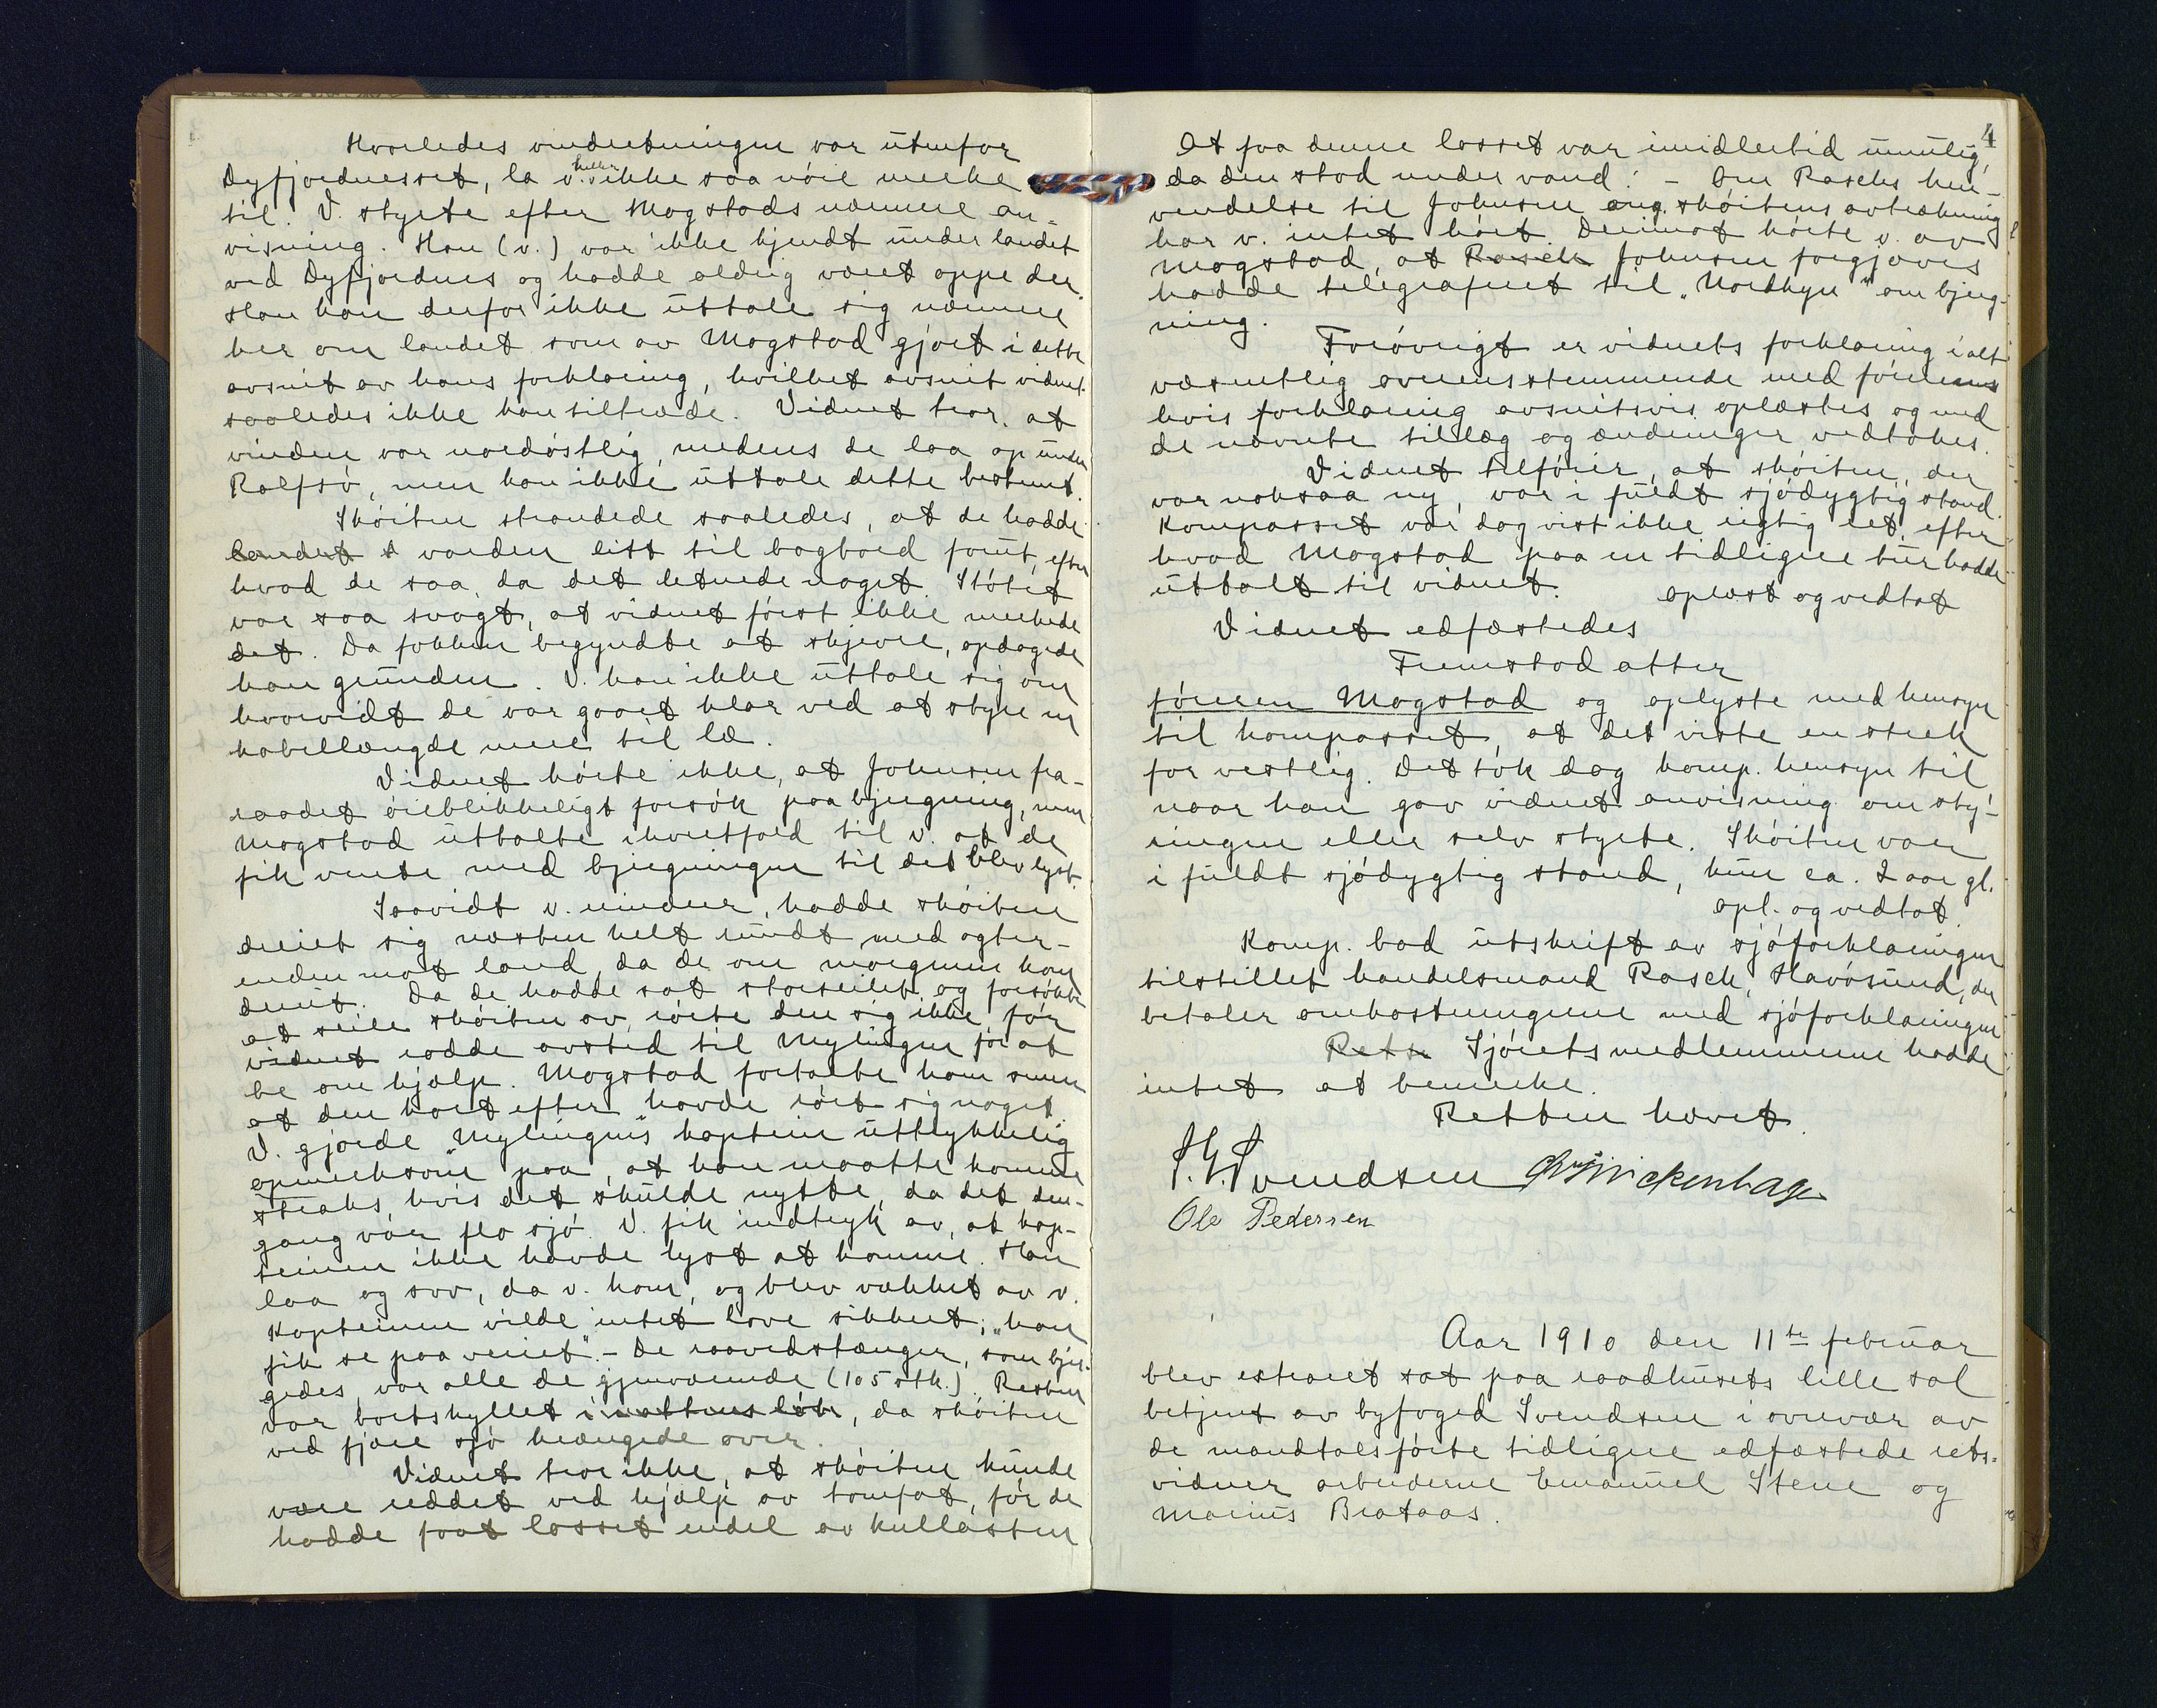 Hvorledes vindretningen var utenfor
Dyfjordnesset, la v. heller ikke saa nöie merke
til. V. styrte efter Mogstads nærmere an-
visning. Han (v.) var ikke kjendt under landet
ved Dyfjordnes og hadde aldrig været oppe der.
Han kan derfor ikke uttale sig nærmere
her om landet som av Mogstad gjort i dette
avsnit av hans forklaring, hvilket avsnit vidnet
saaledes ikke kan tiltræde. Vidnet tror, at
vinden var nordöstlig, medens de laa op under
Rolfsö, men kan ikke uttale dette bestemt.
Sköiten strandede saaledes, at de hadde
landet i varden litt til bagbord forut, efter
hvad de saa, da det letnede noget. Stötet
var saa svagt, at vidnet först ikke merkede
det. Da fokken begyndte at skjevre, opdagede
han grunden. V. kan ikke uttale sig om
hvorvidt de var gaaet klar ved at styre en
kabellængde mere til læ.
Vidnet hörte ikke, at Johnsen fra-
raadet öieblikkeligt forsök paa bjergning, men
Mogstad uttalte ihvertfald til v. at de
fik vente med bjergningen til det blev lyst.
Saavidt v. minder, hadde sköiten
dreiet sig næsten helt rundt med agter-
enden mot land, da de om morgenen kom
derut. Da de hadde sat storseilet og forsökte
at seile sköiten av, rörte den sig ikke, för
vidnet rodde avsted til Mylingen for at
be om hjælp. Mogstad fortalte ham senere
at den kort efter havde rört sig noget.
V. gjorde "Mylingens" kaptein uttrykkelig
opmerksom paa, at han maatte komme
straks, hvis det skulde nytte, da det den-
gang var flo sjö. V. fik indtryk av, at kap-
teinen ikke havde lyst at komme. Han
laa og sov, da v. kom, og blev vækket av v.
Kapteinen vilde intet love sikkert; "han
fik se paa veiret". - De raavedstænger, som bjer-
gedes, var alle de gjenværende (105 stk.). Resten
var bortskyllet i nattens löb, da sköiten
ved fjære sjö krængede over.
Vidnet tror ikke, at sköiten kunde
være reddet ved hjælp av tomfat, för de
hadde faat losset endel av kullasten
4
At faa denne losset var imidlertid umulig,
da den stod under vand. - Om Raschs hen-
vendelse til Johnsen ang. sköitens avtrækning
har v. intet hört. Derimot hörte v. av
Mogstad, at Rasch Johnsen forgjæves
hadde telegrafert til "Nordkyn" om bjerg-
ning.
Forövrigt er vidnets forklaring ialt
væsentlig overensstemmende med förerens
hvis forklaring avsnitsvis oplæstes og med
de nævnte tillæg og ændringer vedtokes.
Vidnet tilföier, at sköiten, der
var noksaa ny, var i fuldt sjödygtig stand.
Kompasset var dog vist ikke rigtig ret, efter
hvad Mogstad paa en tidligere tur hadde
uttalt til vidnet. oplæst og vedtat
Vidnet edfæstedes
Fremstod atter
föreren Mogstad og oplyste med hensyn
til kompasset, at det viste en strek
for vestlig. Det tok dog komp. hensyn til
naar han gav vidnet anvisning om sty-
ringen eller selv styrte. Sköiten var
i fuldt sjödygtig stand, kun ca. 2 aar gl.
opl. og vedtat.
Komp. bad utskrift av sjöforklaringen
tilstillet handelsmand Rasch, Havösund, der
betaler omkostningerne med sjöforklaringen
Rette Sjöretsmedlemmerne hadde
intet at bemerke.
Retten hævet.
J. G. Svendsen Chr. Wickenhagen
Ole Pedersen
Aar 1910 den 11te februar
blev extraret sat paa raadhusets lille sal
betjent av byfoged Svendsen i overvær av
de mandtalsförte tidligere edfæstede rets-
vidner arbeiderne Emanuel Stene og
Marius Brataas.